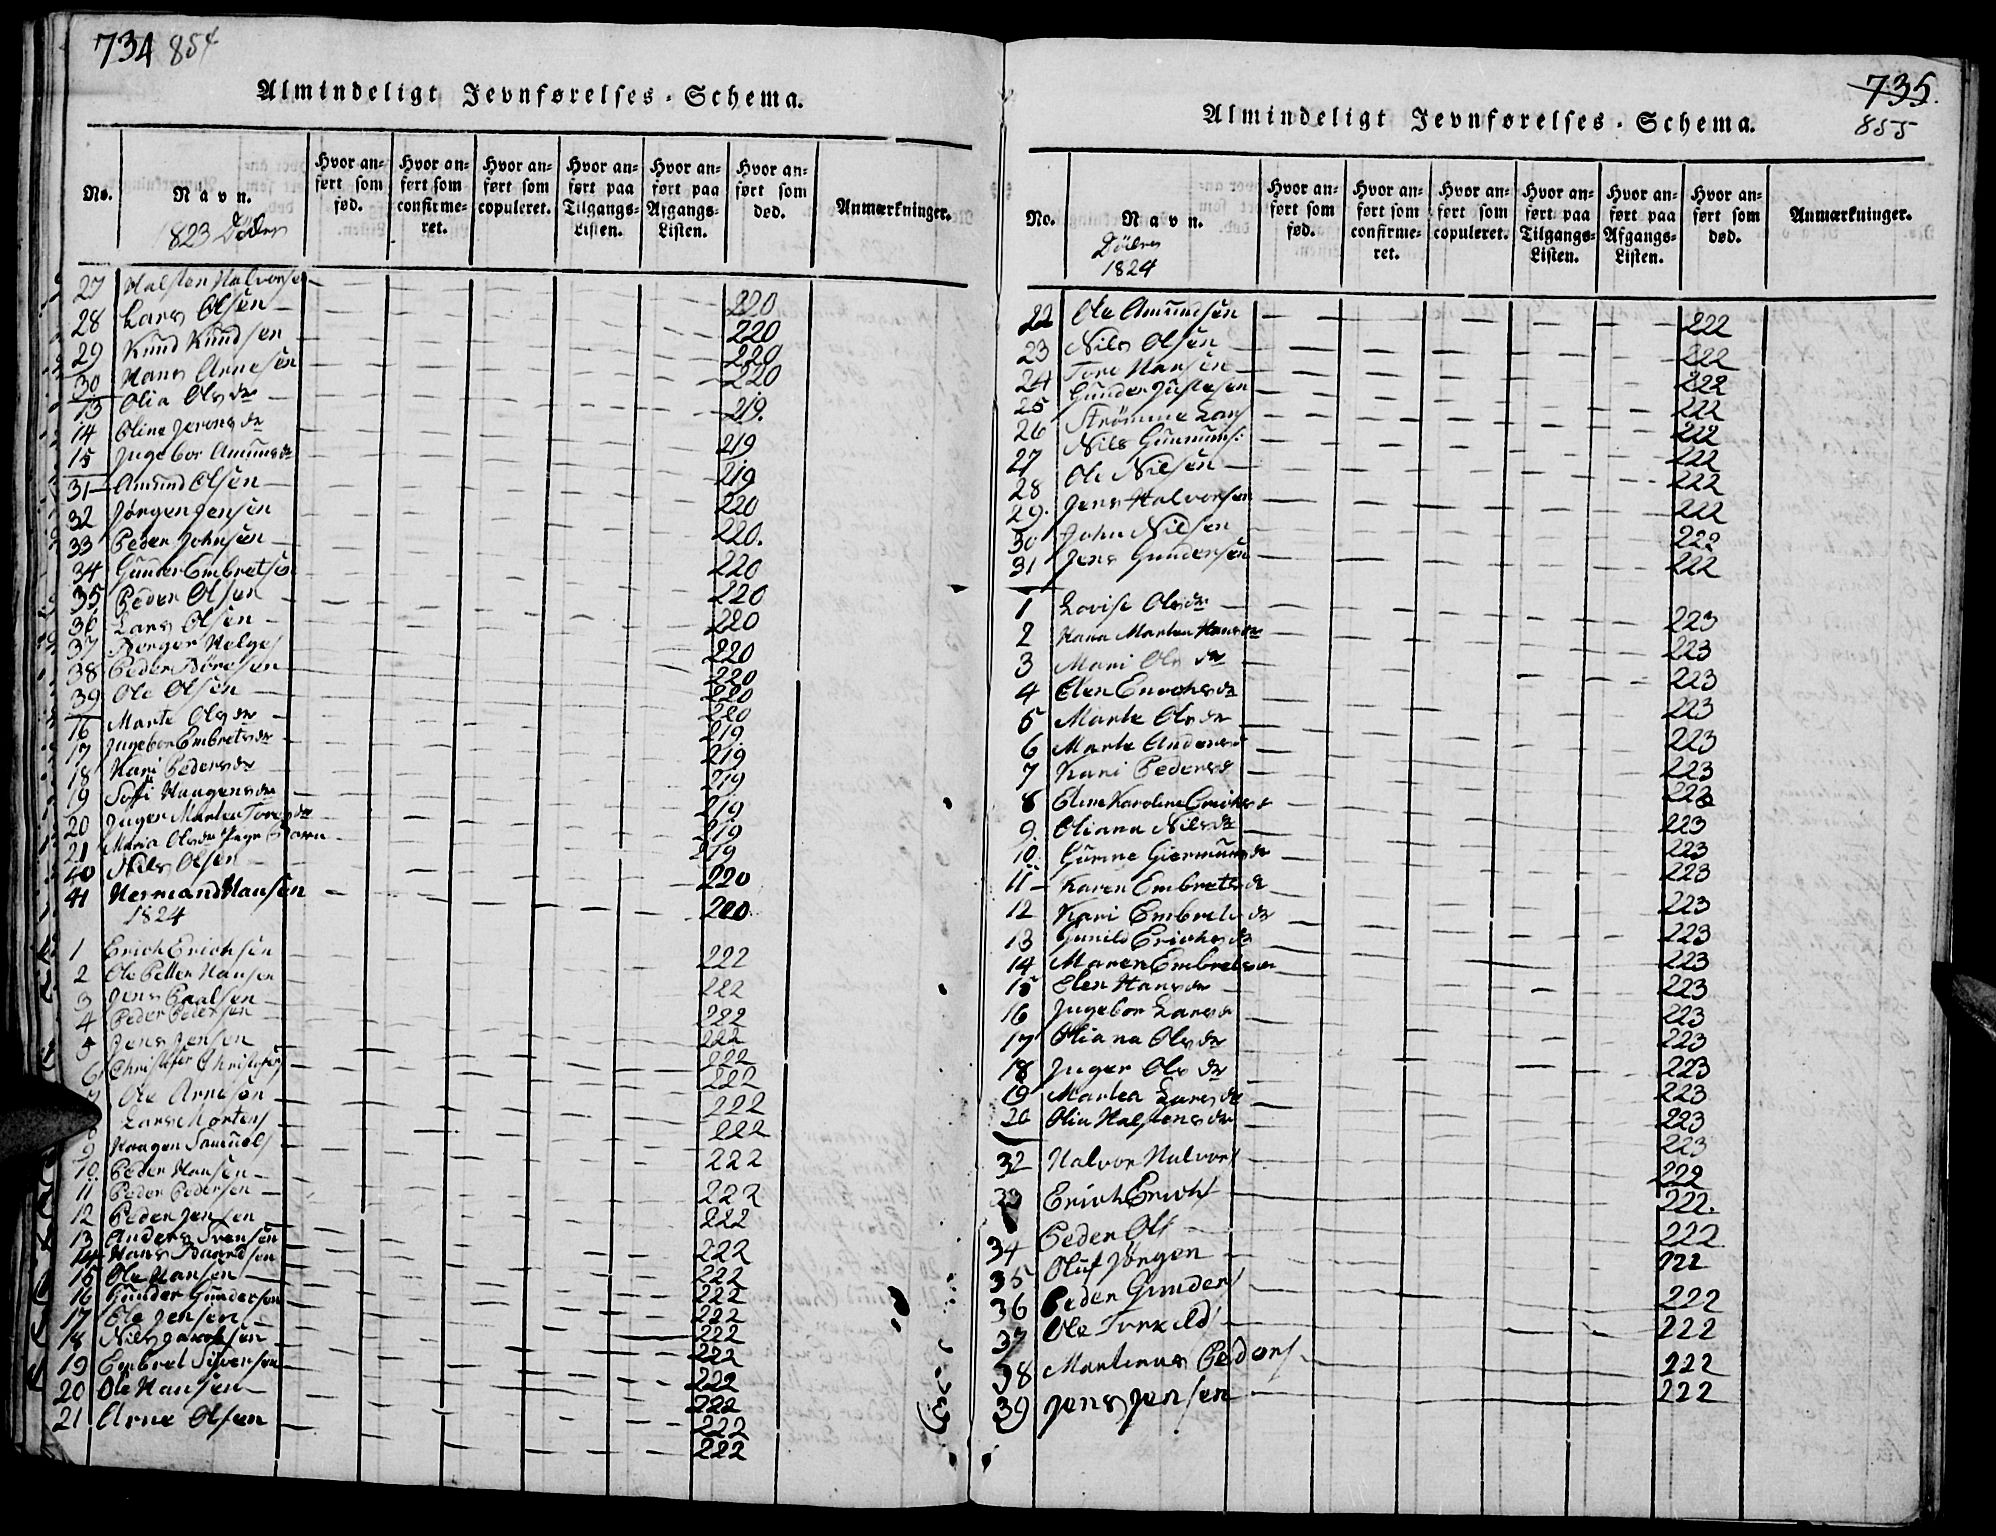 734 854
Almindeligt Jevnførelses-Schema.
No. Navn. Hvor anført som fød. Hvor anført som confirmeret. Hvor anført som copuleret. Hvor anført paa Tilgangs-Listen. Hvor anført paa Afgangs-Listen. Hvor anført som død. Anmærkninger.
1823 Döder
27 Halsten Halvorsen 220
28 Lars Olsen 220
29 Knud Knudsen 220
30 Hans Arnesen 220
13 Olia Olsdr 219.
14 Oline Jensdr 219
15 Ingebor Amundsdr 219
31 Amund Olsen 220
32 Jørgen Jensen 220.
33 Peder Johnsen 220
34 Gunder Embretsen 220
35 Peder Olsen 220
36 Lars Olsen 220
37 Berger Helges 220
38 Peder Böresen 220
39 Ole Olsen 220
16 Marte Olsdr 219
17 Ingebor Embretsdr 219
18 Kari Pedersdr 219
19 Soffi Haagensdr 219
20 Inger Martea Toresdr 219
21 Maria Olsdr 219
40 Nils Olsen 220
41 Hermand Hansen 220
1824
1 Erich Erichsen 222
2 Ole Petter Hansen 222
3 Jens Paalsen 222
4 Peder Pedersen 222
5 Jens Jensen 222
6 Christofer Christofers 222
7 Ole Arnesen 222
8 Lars Mortens 222
9 Haagen Samuels 222
10 Peder Hansen 222
11 Peder Pedersen 222
12 Peder Jensen 222
13 Anders Svensen 222
14 Hans Baardsen 222
15 Ole Hansen 222
16 Gunder Gundersen 222
17 Ole Jensen 222
18 Nils Jacobsen 222
19 Embret Siversen 222
20 Ole Hansen 222
21 Arne Olsen 222
735.
855
Almindeligt Jevnførelses-Schema.
No. Navn. Hvor anført som fød. Hvor anført som confirmeret. Hvor anført som copuleret. Hvor anført paa Tilgangs-Listen. Hvor anført paa Afgangs-Listen. Hvor anført som død. Anmærkninger.
Döder
1824
22 Ole Amundsen 222
23 Nils Olsen 222
24 Tore Hansen 222
25 Gunder Justesen 222
26 Strömme Lars 222
27 Nils Gunnums: 222
28 Ole Nilsen 222
29. Jens Halvorsen 222
30 John Nilsen 222
31 Jens Gundersen 222
1 Lovise Olsdr 223
2 Hana Martea Hansdr 223
3 Mari Olsdr 223
4 Elen Enochsdr 223
5 Marte Olsdr 223
6 Marte Andersd 223
7 Kari Pedersd 223
8 Eline Karoline Erichsdr 223
9. Oliana Nilsdr 223
10. Gunne Giermundsdr 223
11 Karen Embretsdr 223
12 Kari Embretsdr 223
13 Gunild Erichsdr 223
14 Maren Embretsdr 223
15 Elen Hansdr 223
16 Ingebor Larsd 223
17 Oliana Olsdr 223
18 Inger Olsdr 223
19 Martea Larsdr 223
20 Olia Halstensdr 223
32 Halvor Halvors 222
33 Erich Erichs 222.
34 Peder Ols 222
35 Oluf Jörgen 222
36 Peder Gunders 222
37 Ole Torkild 222
38 Martinus Peders 222
39 Jens Jensen 222